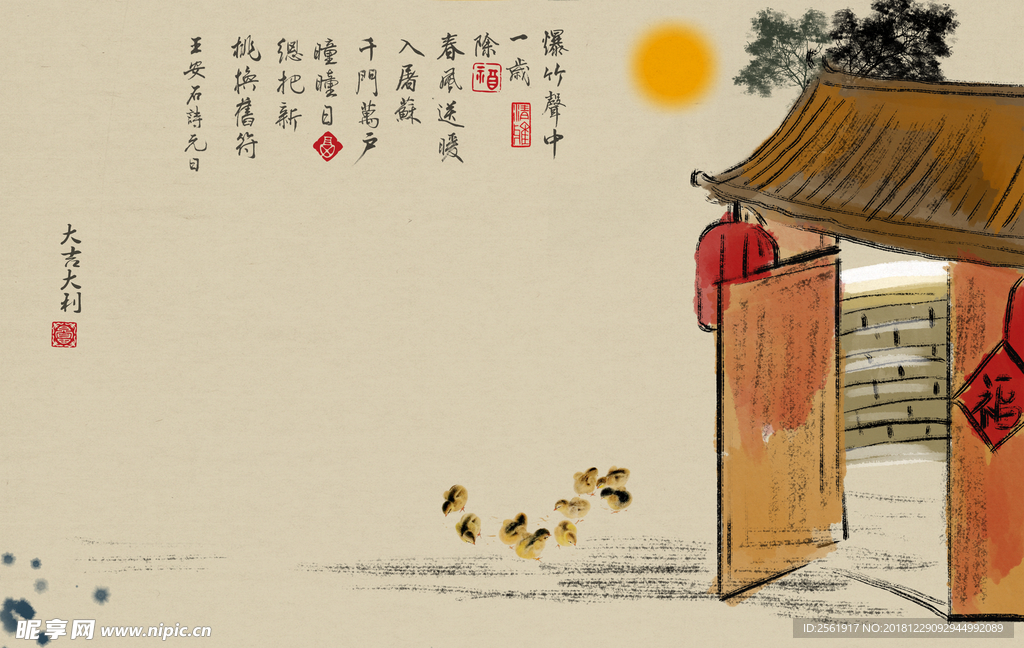 爆竹聲中
一歲
除
春風送暖
入屠蘇
千門萬戶
曈曈日
總把新
桃換舊符
王安石詩元日
大吉大利
福
昵享网 www.nipic.cn
ID:2561917 NO:20181229092944992089